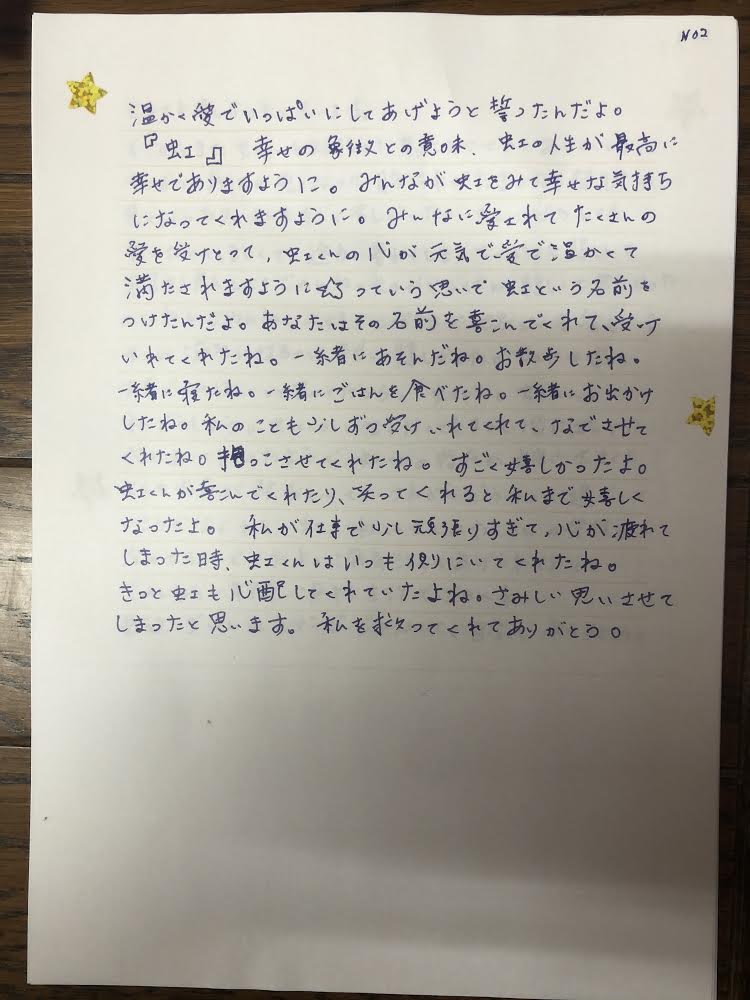 NO2
温かく愛でいっぱいにしてあげようと誓ったんだよ。
『虹』幸せの象徴との意味、虹の人生が最高に
幸せでありますように。みんなが虹をみて幸せな気持ち
になってくれますように。みんなに愛されてたくさんの
愛を受けとって、虹くんの心が元気で愛で温かくて
満たされますように☆っていう思いで虹という名前を
つけたんだよ。あなたはその名前を喜こんでくれて、受け
いれてくれたね。一緒にあそんだね。お散歩したね。
一緒に寝たね。一緒にごはんを食べたね。一緒にお出かけ
したね。私のことも少しずつ受けいれてくれて、なでさせて
くれたね。抱っこさせてくれたね。すごく嬉しかったよ。
虹くんが喜こんでくれたり、笑ってくれると私まで嬉しく
なったよ。私が仕事で少し頑張りすぎて、心が疲れて
しまった時、虹くんはいつも側にいてくれたね。
きっと虹も心配してくれていたよね。さみしい思いさせて
しまったと思います。私を救ってくれてありがとう。